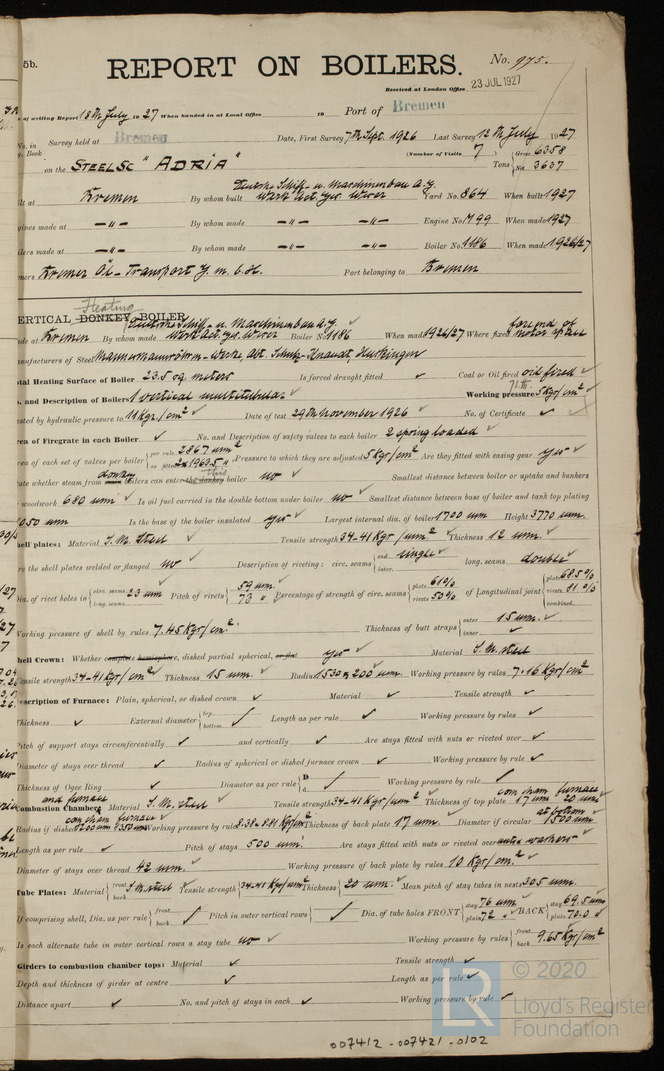 5b.
REPORT ON BOILERS.
No. 975.
Received at London Office 23 JUL 1927
of writing Report 18th July 1927 When handed in at Local Office 19 Port of Bremen
No. in Survey held at Bremen Date, First Survey 7th Sept. 1926 Last Survey 12th July 1927
Book (Number of Visits 7)
on the STEEL SC "ADRIA" Tons { Gross 6358 Net 3637
Bremen By whom built Deutsche Schiff- u. Maschinenbau A.G. Werk Act. Ges. Weser Yard No. 864 When built 1927
made at —"— By whom made —"— —"— Engine No. 799 When made 1927
made at —"— By whom made —"— —"— Boiler No. 1186 When made 1926/27
Bremer Öl-Transport G.m.b.H. Port belonging to Bremen
Heating
VERTICAL DONKEY BOILER
made at Bremen By whom made Deutsche Schiff- u. Maschinenbau A.G. Werk Act. Ges. Weser Boiler No. 1186 When made 1926/27 Where fixed
Manufacturers of Steel Mannesmannröhren-Werke, Abt. Schulz-Knaudt, Huckingen
Total Heating Surface of Boiler 23.5 sq. meters Is forced draught fitted ✓ Coal or Oil fired oil fired
No. and Description of Boilers 1 vertical multitubular Working pressure 5 Kgr/cm² 71 lb.
tested by hydraulic pressure to 11 Kgr./cm² Date of test 29th November 1926 No. of Certificate ✓
Area of Firegrate in each Boiler ✓ No. and Description of safety valves to each boiler 2 spring loaded
Area of each set of valves per boiler { per rule 2867 mm² as fitted 2x1963.5 " Pressure to which they are adjusted 5 Kgr/cm² Are they fitted with easing gear yes
State whether steam from main donkey boilers can enter the donkey this boiler no Smallest distance between boiler or uptake and bunkers
woodwork 680 mm Is oil fuel carried in the double bottom under boiler no Smallest distance between base of boiler and tank top plating
1050 mm Is the base of the boiler insulated yes Largest internal dia. of boiler 1700 mm Height 3770 mm
Shell plates: Material S.M. steel Tensile strength 34-41 Kgr/mm² Thickness 12 mm.
Are the shell plates welded or flanged no Description of riveting: circ. seams { end single inter. long. seams double
Dia. of rivet holes in { circ. seams long. seams 23 mm Pitch of rivets { 59 mm 73 " Percentage of strength of circ. seams { plate 61 % rivets 50 % of Longitudinal joint { plate 68.5 % rivets 81 % combined.
Working pressure of shell by rules 7.45 Kgr/cm² Thickness of butt straps { outer 15 mm. inner ✓
Shell Crown: Whether complete hemisphere, dished partial spherical, or flat yes Material S.M. steel
Tensile strength 34-41 Kgr/cm² Thickness 15 mm. Radius 1530 & 200 mm. Working pressure by rules 7.16 Kgr/cm²
Description of Furnace: Plain, spherical, or dished crown ✓ Material ✓ Tensile strength ✓
Thickness ✓ External diameter { top bottom ✓ Length as per rule ✓ Working pressure by rules ✓
Pitch of support stays circumferentially ✓ and vertically ✓ Are stays fitted with nuts or riveted over ✓
Diameter of stays over thread ✓ Radius of spherical or dished furnace crown ✓ Working pressure by rule ✓
Thickness of Ogee Ring ✓ Diameter as per rule { D d ✓ Working pressure by rule ✓
and furnace com cham furnace
Combustion Chamber: Material S.M. steel Tensile strength 34-41 Kgr/mm² Thickness of top plate 17 mm 20 mm
com cham furnace
Radius if dished 1200 mm 1350 mm Working pressure by rule 8.38-8.81 Kgr/cm² Thickness of back plate 17 mm. Diameter if circular at bottom 1500 mm
Length as per rule ✓ Pitch of stays 500 mm. Are stays fitted with nuts or riveted over nuts & washers
Diameter of stays over thread 42 mm. Working pressure of back plate by rules 10 Kgr/cm²
Tube Plates: Material { front back S.M. steel Tensile strength { 34-41 Kgr/mm² Thickness { 20 mm. Mean pitch of stay tubes in nests 305 mm.
If comprising shell, Dia. as per rule { front back ✓ Pitch in outer vertical rows { ✓ Dia. of tube holes FRONT { stay 76 mm plain 72 " BACK { stay 69.5 mm plain 70.0 "
Is each alternate tube in outer vertical rows a stay tube no Working pressure by rules { front back 9.65 Kgr/cm²
Girders to combustion chamber tops: Material ✓ Tensile strength ✓
Depth and thickness of girder at centre ✓ Length as per rule ✓
Distance apart ✓ No. and pitch of stays in each ✓ Working pressure by rule ✓
LR © 2020
Lloyd's Register
Foundation
007412-007421-0102